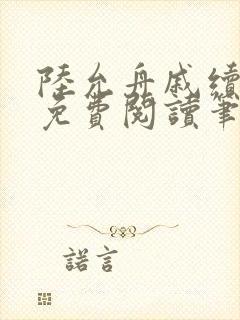 陸允舟戚續
免費閱讀筆
諾言